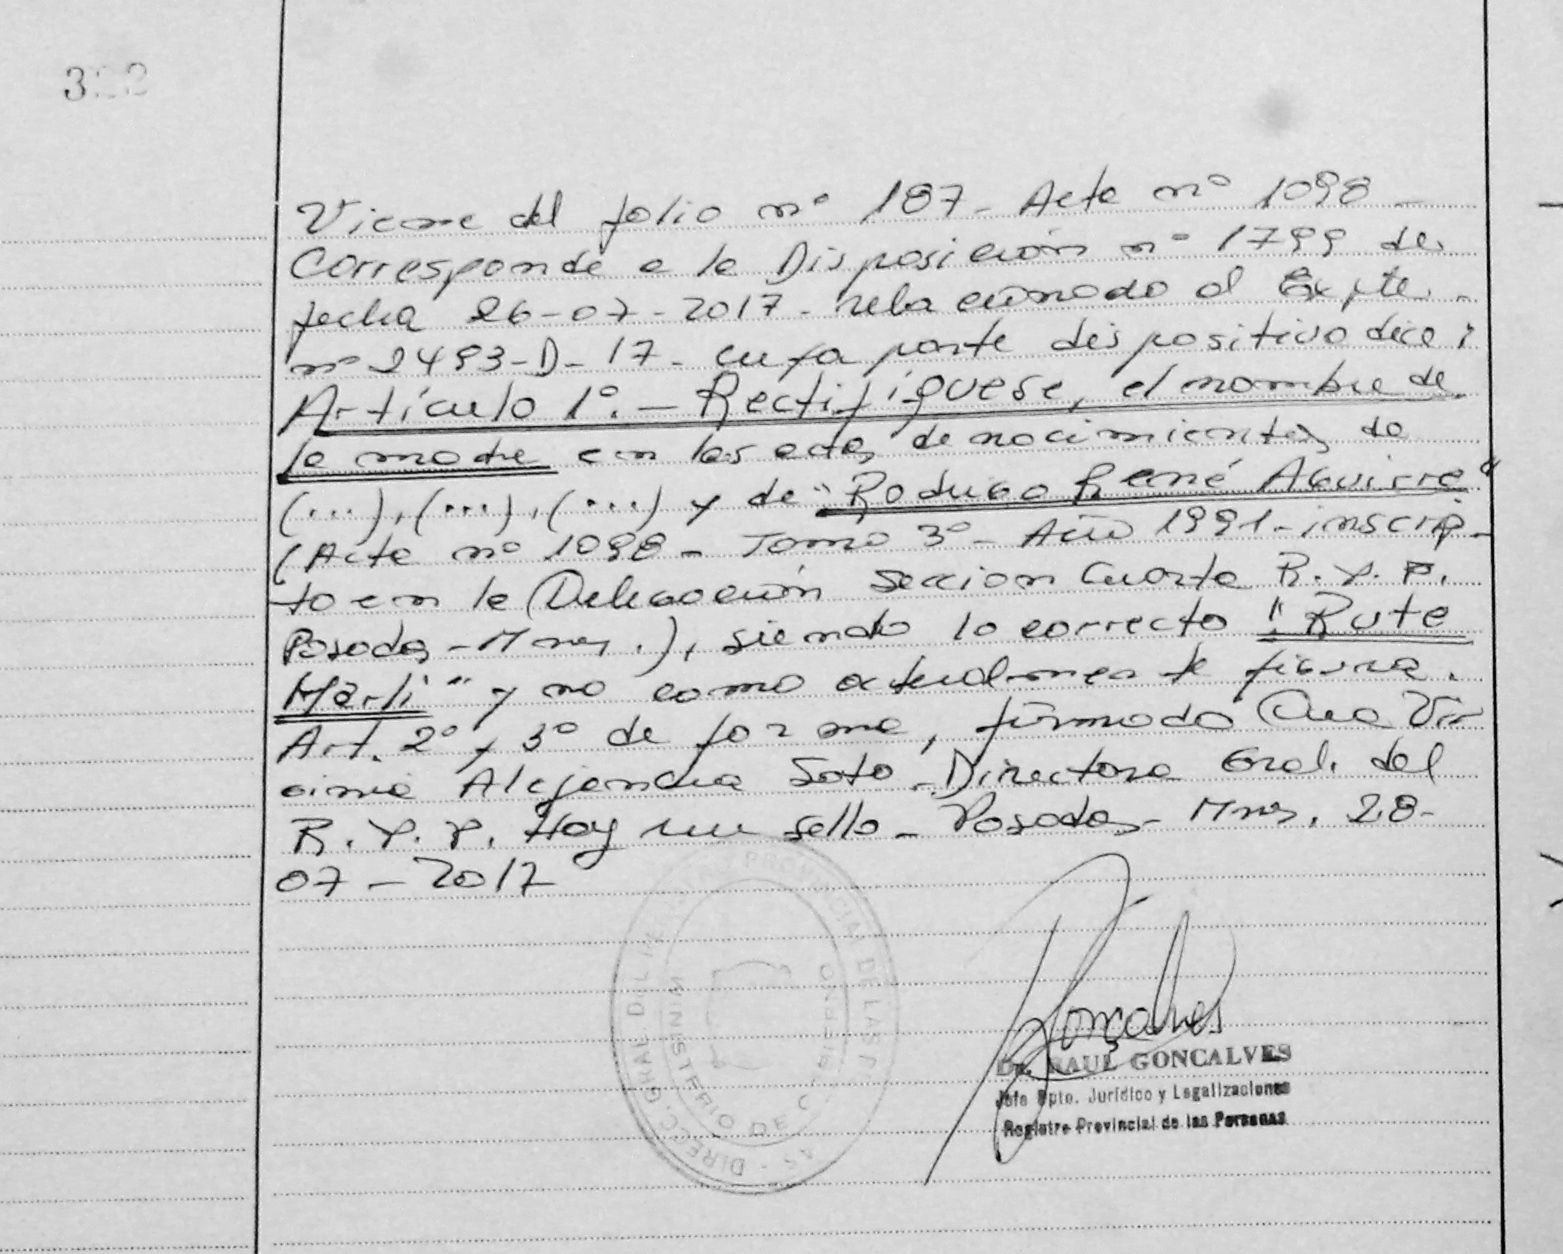 322
Viene del folio nº 187 - Acta nº 1098 -
Corresponde a la Disposición nº 1799 de
fecha 26-07-2017 - relacionado al Expte.
nº 2493-D-17 - cuya parte dispositiva dice:
Artículo 1º. - Rectifíquese, el nombre de
la madre en las actas de nacimientos de
(...), (...), (...) y de "Rodrigo René Aguirre"
(Acta nº 1098 - Tomo 3º - Año 1991 - inscrip-
to en la Delegación Sección Cuarta R.P.P.
Posadas - Mnes.), siendo lo correcto "Rute
Marli" y no como actualmente figura.
Art. 2º y 3º de forma, firmado Ana Vir
ginia Alejandra Soto - Directora Gral. del
R.P.P. Hay un sello - Posadas - Mnes. 28-
07-2017
DIRECC. GRAL. DEL PROVINCIAL DE LAS
MINISTERIO DE GOBIERNO
Gonçalves
Dr. RAUL GONCALVES
Jefe Dpto. Jurídico y Legalizaciones
Registro Provincial de las Personas